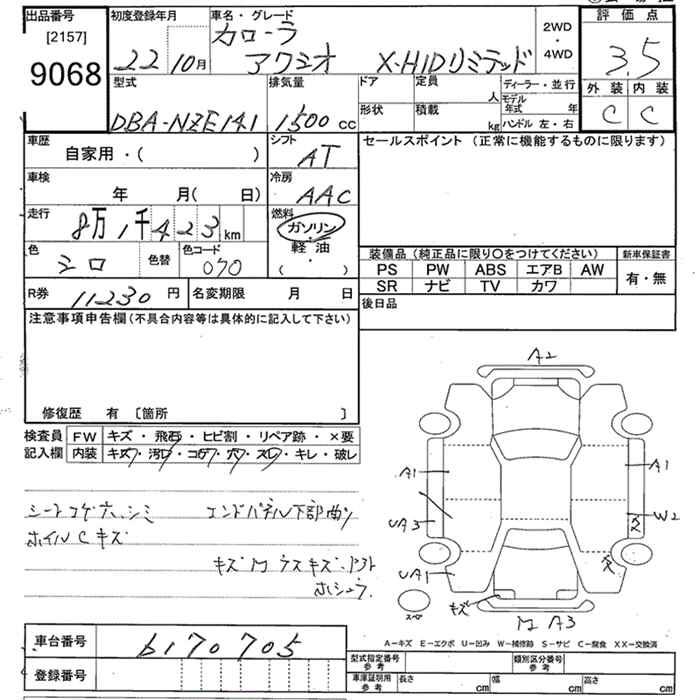 出品番号
[2157]
9068
初度登録年月
22 10月
車名・グレード
カローラ
アクシオ X-HIDリミテッド
2WD
・
4WD
評価点
3.5
外装 内装
C C
型式
DBA-NZE141
排気量
1500 cc
ドア
定員
人
形状
積載
kg
ディーラー・並行
モデル年式 年
ハンドル 左・右
車歴
自家用・( )
シフト
AT
セールスポイント (正常に機能するものに限ります)
車検
年 月( 日)
冷房
AAC
走行
8万1千423km
燃料
ガソリン
軽油
・
( )
色
シロ
色替
色コード
070
装備品 (純正品に限り〇をつけてください)
新車保証書
PS PW ABS エアB AW
有・無
SR ナビ TV カワ
R券 11230 円
名変期限 月 日
後日品
注意事項申告欄(不具合内容等は具体的に記入して下さい)
修復歴 有 〔箇所 〕
検査員
記入欄
FW キズ・飛石・ヒビ割・リペア跡・×要
内装 キズ・汚レ・コゲ・穴・スレ・キレ・破レ
シートコゲ穴、シミ エンドパネル下部曲り
ホイルCキズ
キズ
ホシュウ
A2
A1
A1
UA3
W2
UA1
キズ
スペア
M A3
車台番号 6170705
登録番号
A－キズ E－エクボ U－凹み W－補修跡 S－サビ C－腐食 XX－交換済
型式指定番号
参考
類別区分番号
参考
車庫証明用
参考
長さ cm
幅 cm
高さ cm